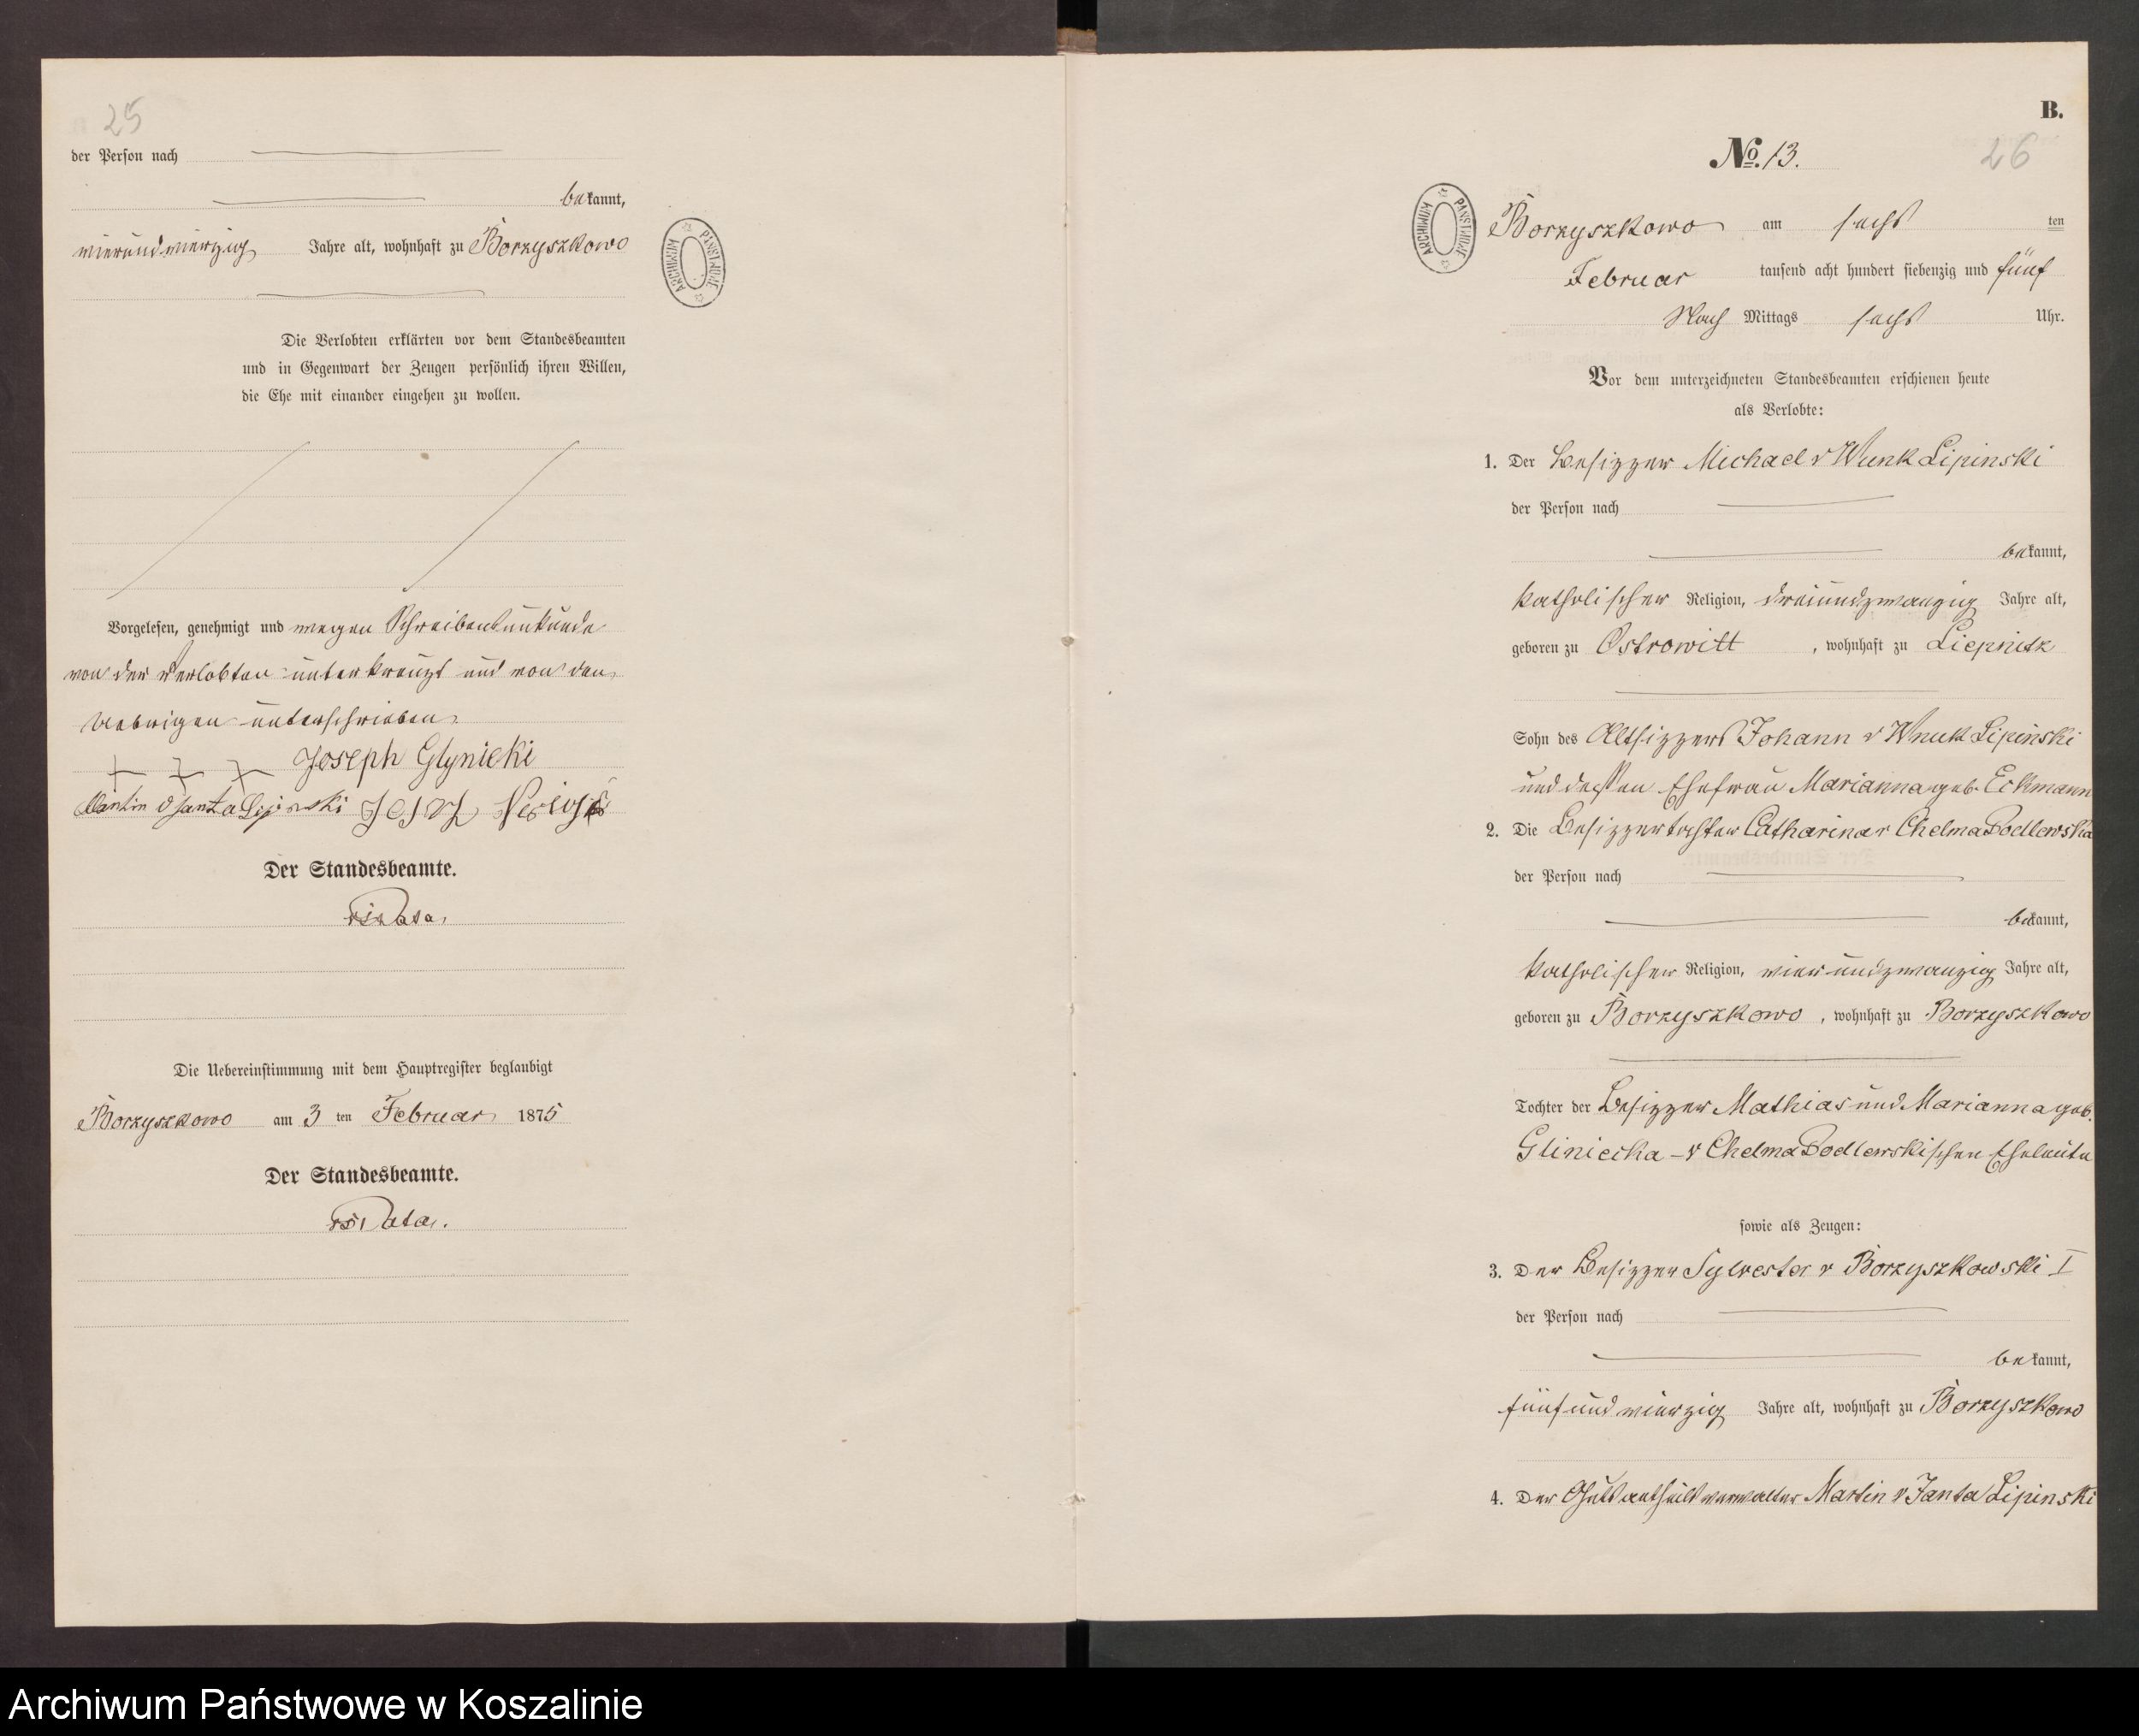 25
der Person nach
bekannt,
vierundvierzig Jahre alt, wohnhaft zu Borzyszkowo
ARCHIWUM PAŃSTWOWE
Die Verlobten erklärten vor dem Standesbeamten
und in Gegenwart der Zeugen persönlich ihren Willen,
die Ehe mit einander eingehen zu wollen.
Vorgelesen, genehmigt und wegen Schreibensunkunde
von der Verlobten unterkreuzt und von den
Uebrigen unterschrieben
+ + + Joseph Glynicki
Martin v Janta Lipinski
Der Standesbeamte.
Die Uebereinstimmung mit dem Hauptregister beglaubigt
Borzyszkowo am 3 ten Februar 1875
Der Standesbeamte.
B.
No. 13.
26
ARCHIWUM PAŃSTWOWE
Borzyszkowo am sechs ten
Februar tausend acht hundert siebenzig und fünf
Nach Mittags sechs Uhr.
Vor dem unterzeichneten Standesbeamten erschienen heute
als Verlobte:
1. Der Besitzer Michael v Wunk Lipinski
der Person nach
bekannt,
katholischer Religion, dreiundzwanzig Jahre alt,
geboren zu Ostrowitt, wohnhaft zu Liepnitz
Sohn des Altsitzers Johann v Wnuk Lipinski
und dessen Ehefrau Marianna geb. Eckmann
2. Die Besitzertochter Catharina v Chelma Podlewska
der Person nach
bekannt,
katholischer Religion, vierundzwanzig Jahre alt,
geboren zu Borzyszkowo, wohnhaft zu Borzyszkowo
Tochter der Besitzer Mathias und Marianna geb.
Gliniecka – v Chelma Podlewskischen Eheleute
sowie als Zeugen:
3. Der Besitzer Sylvester v Borzyszkowski I
der Person nach
bekannt,
fünfundvierzig Jahre alt, wohnhaft zu Borzyszkowo
4. Der Gutsantheilsverwalter Martin v Janta Lipinski
Archiwum Państwowe w Koszalinie